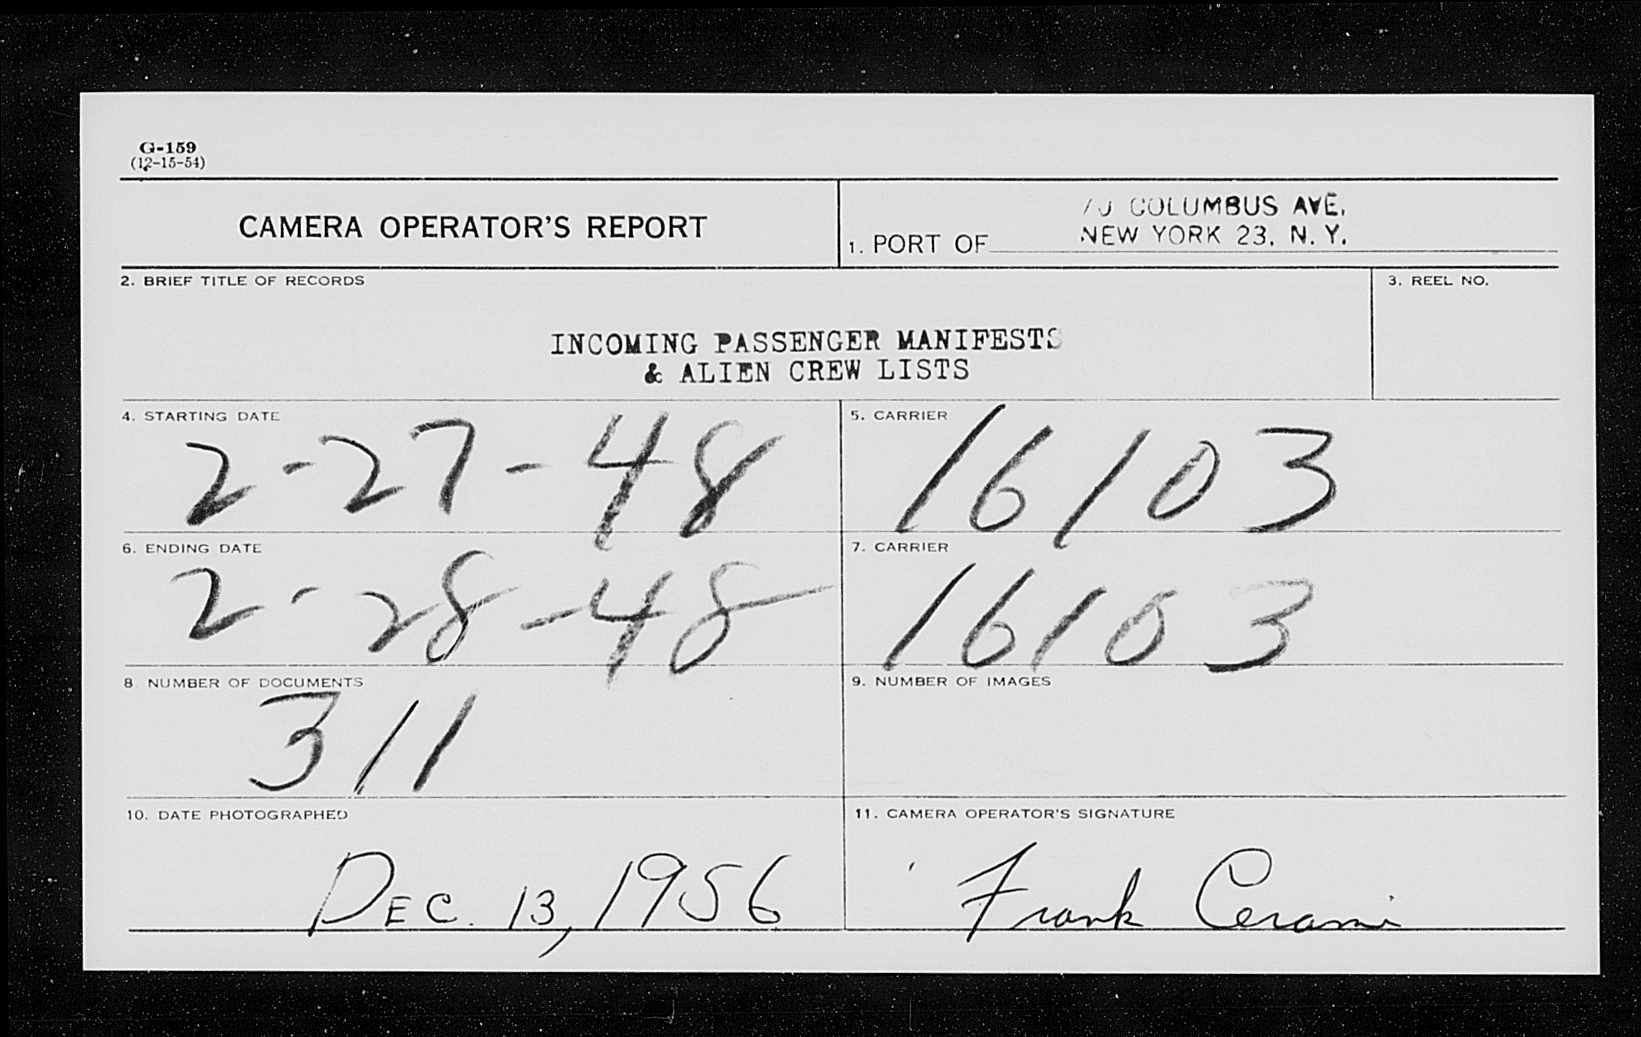 G-159
(12-15-54)
CAMERA OPERATOR'S REPORT
COLUMBUS AVE.
1. PORT OF NEW YORK 23, N. Y.
2. BRIEF TITLE OF RECORDS
3. REEL NO.
INCOMING PASSENGER MANIFESTS
& ALIEN CREW LISTS
4. STARTING DATE
2-27-48
5. CARRIER
16103
6. ENDING DATE
2-28-48
7. CARRIER
16103
8 NUMBER OF DOCUMENTS
311
9. NUMBER OF IMAGES
10. DATE PHOTOGRAPHED
DEC. 13, 1956
11. CAMERA OPERATOR'S SIGNATURE
Frank Cerami